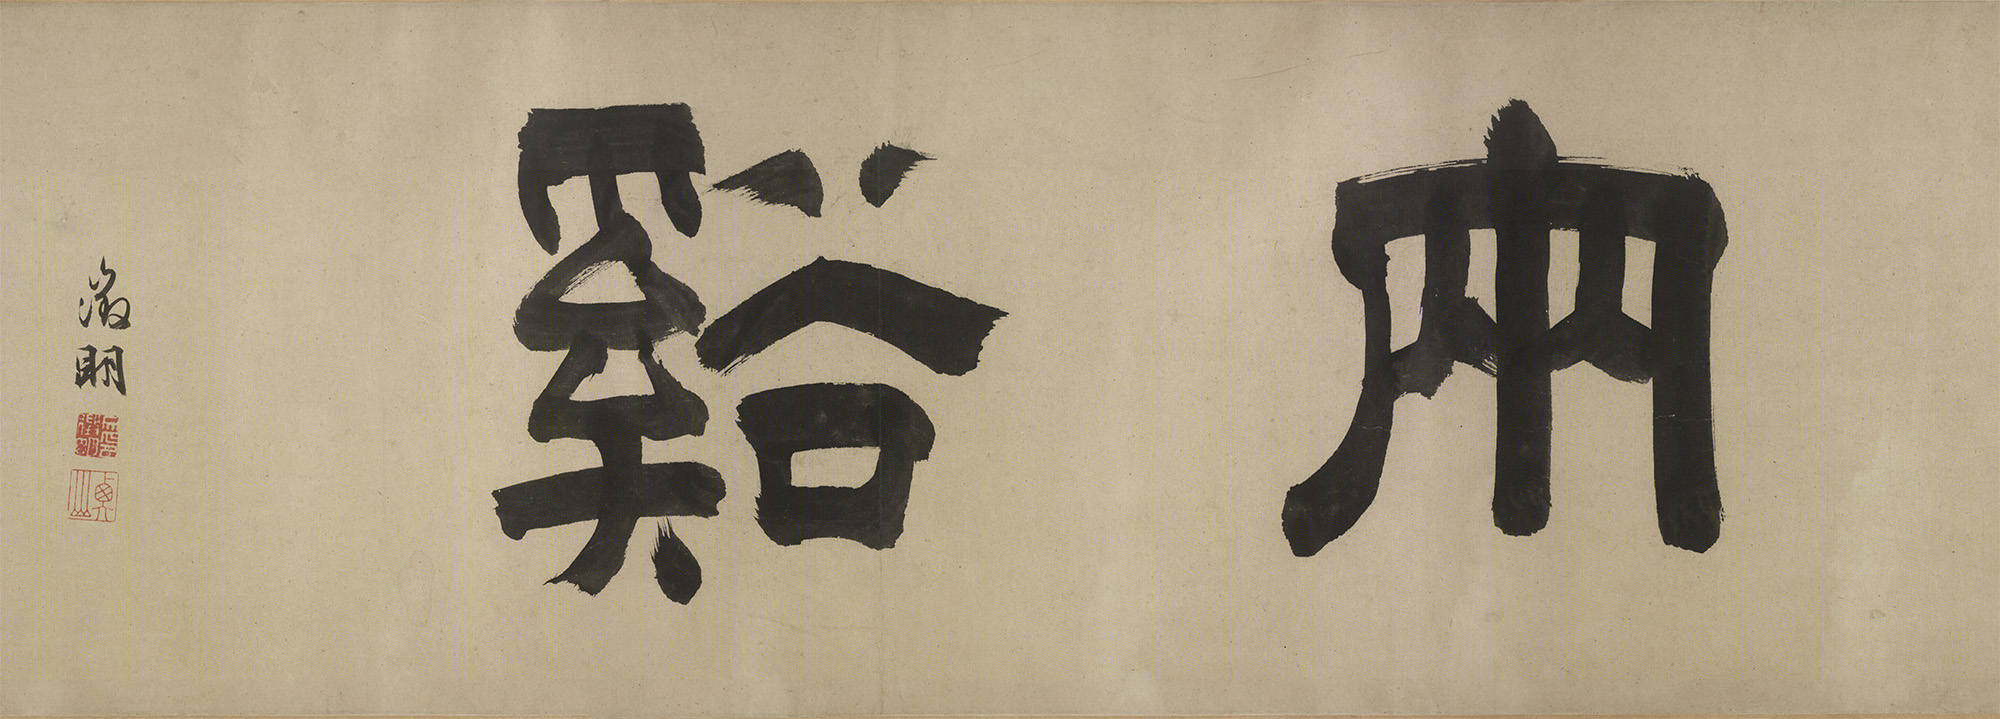 兩谿
徵明